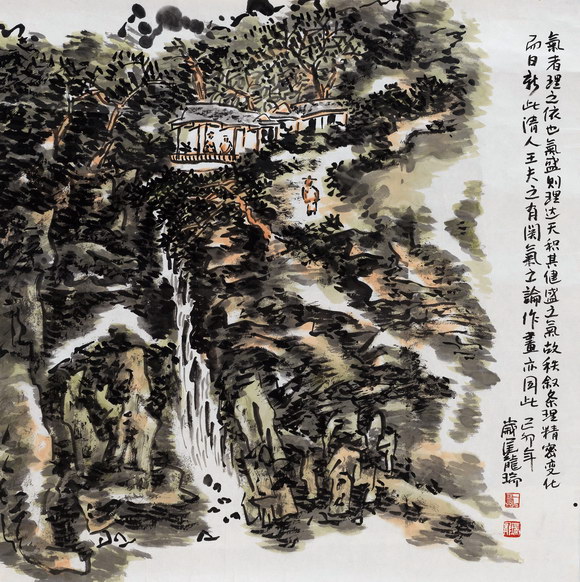 氣者理之依也氣盛則理达天积其健盛之氣故秩叙条理精密变化
而日新此清人王夫之有関氣之論作畫亦同此 己卯年
歲尾龍瑞